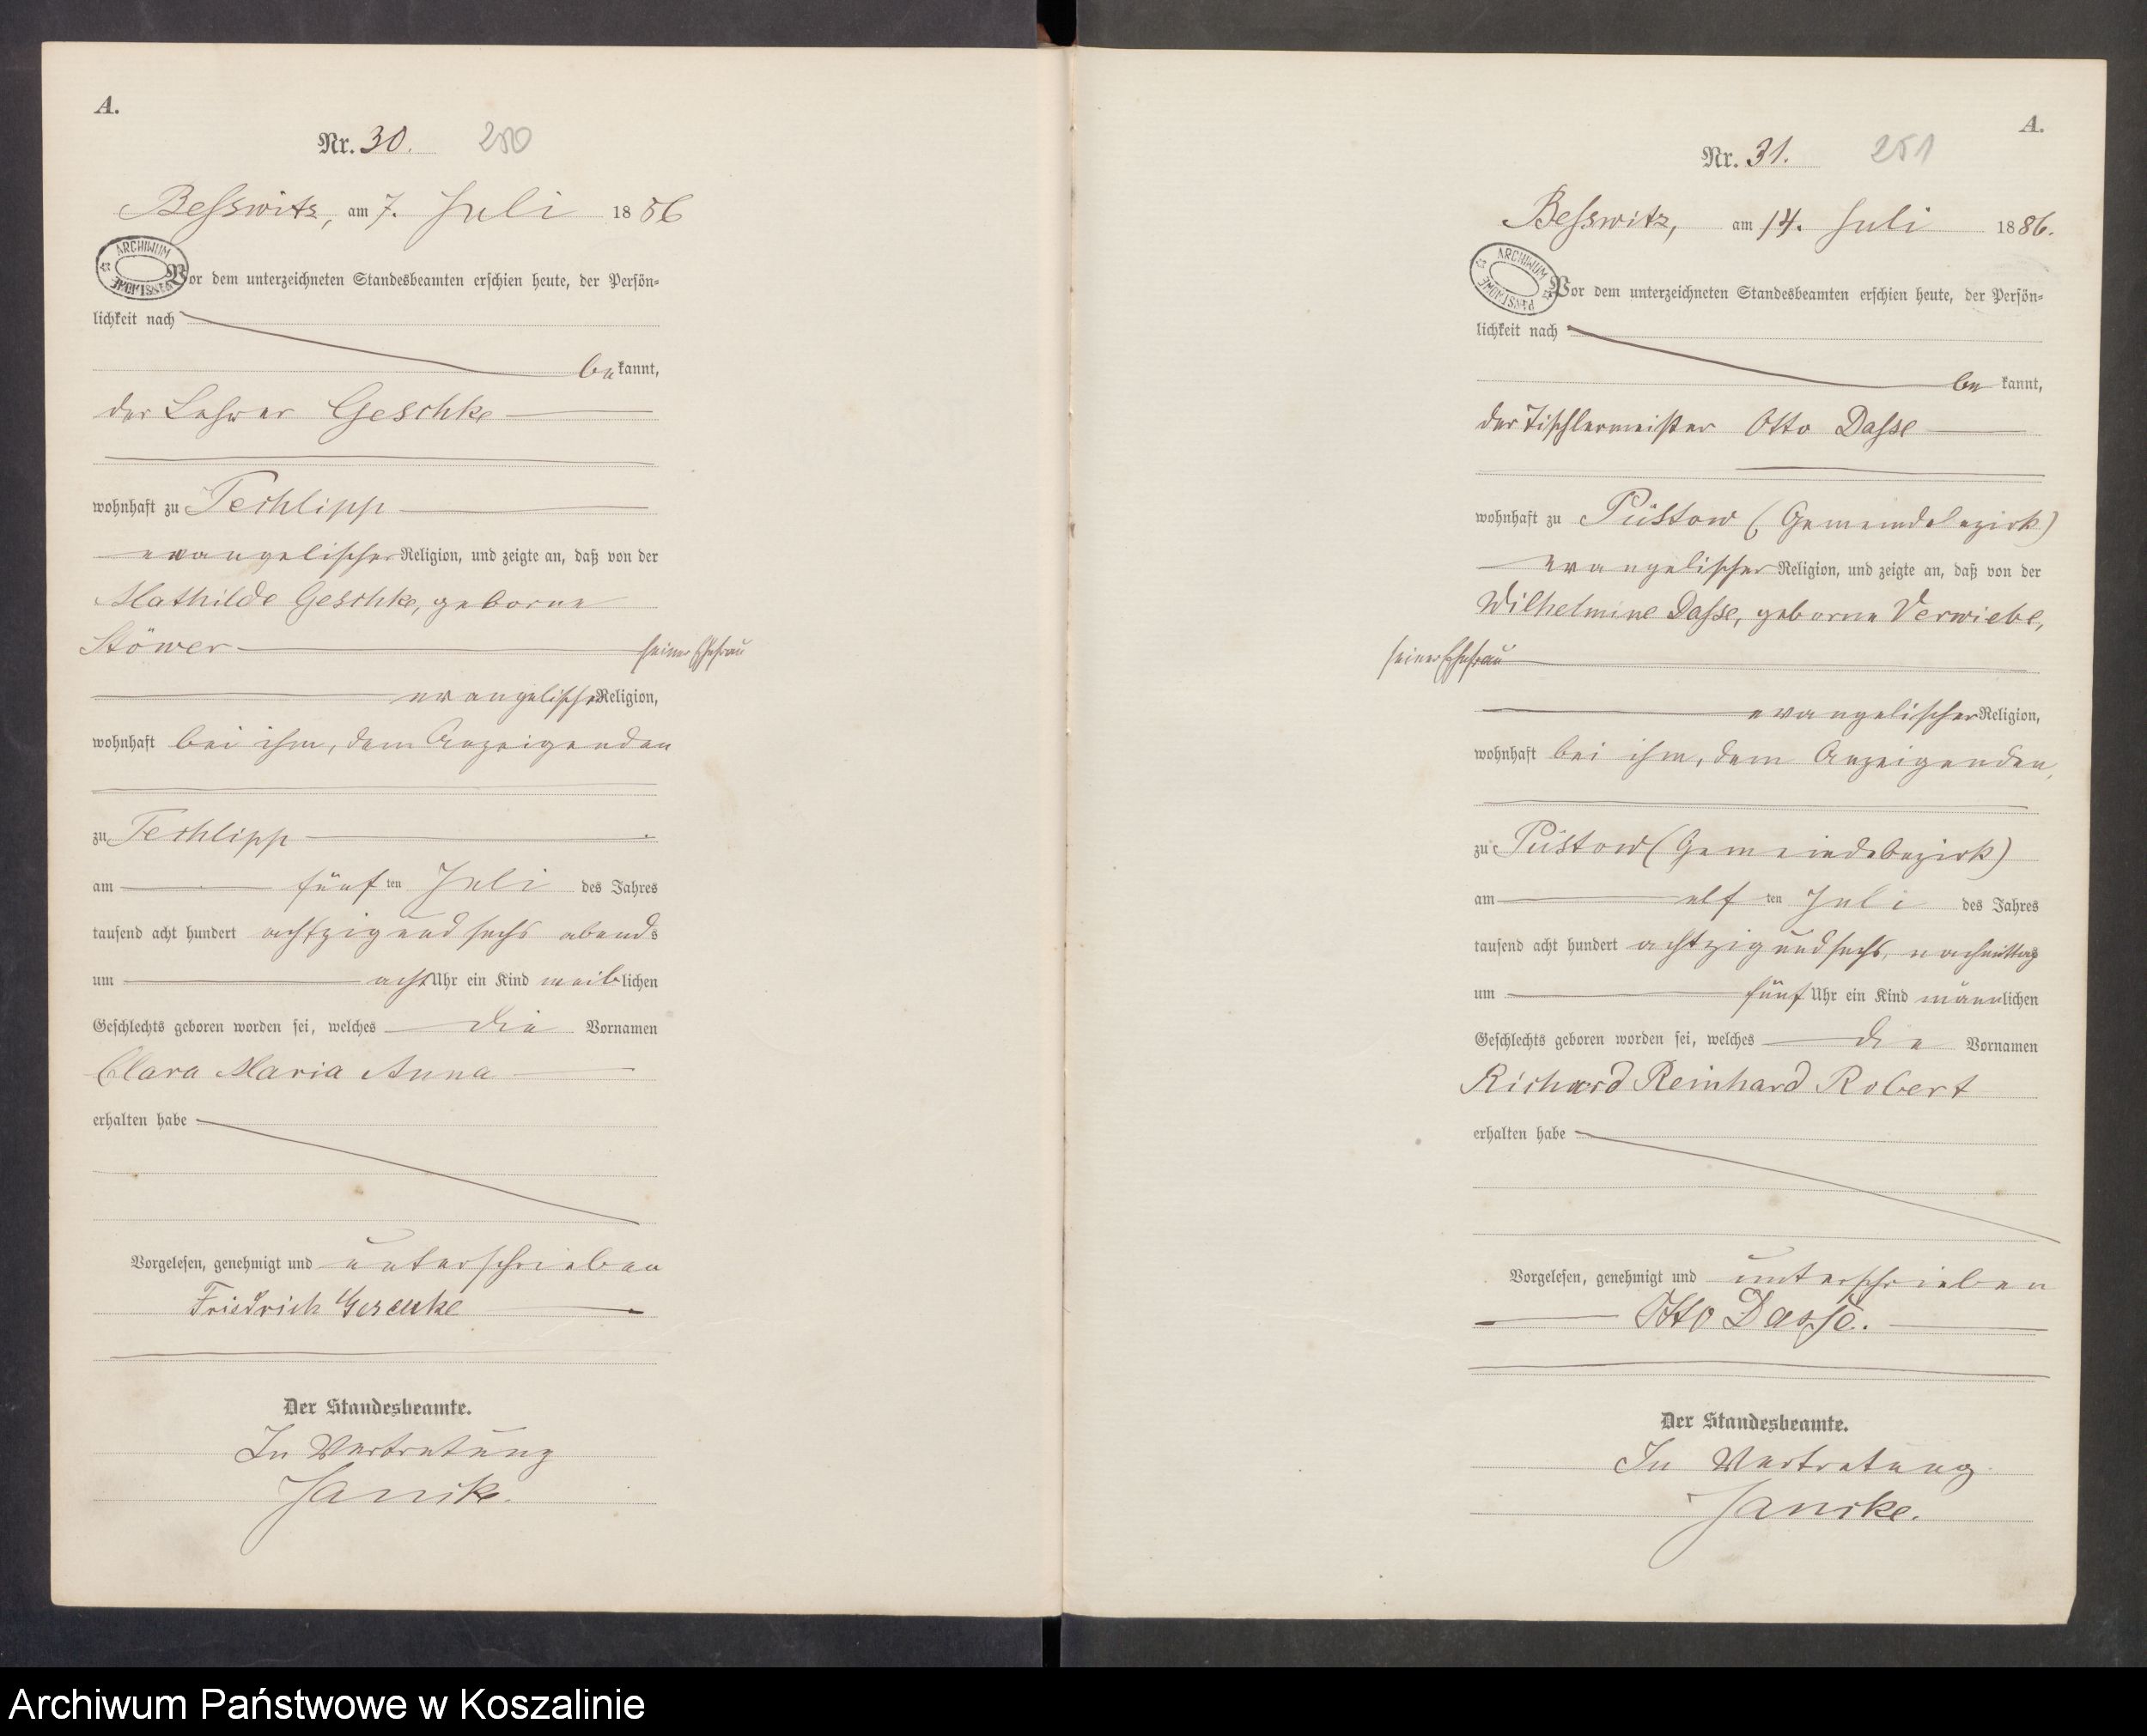 A.
Nr. 30. 250
Beſswitz, am 7. Juli 1886
ARCHIWUM PAŃSTWOWE
Vor dem unterzeichneten Standesbeamten erſchien heute, der Perſön-
lichkeit nach
bekannt,
der Lehrer Geschke
wohnhaft zu Techlipp
evangelischer Religion, und zeigte an, daß von der
Mathilde Geschke, geborne
Stöwer seiner Ehefrau
evangelischer Religion,
wohnhaft bei ihm, dem Anzeigenden
zu Techlipp
am fünf ten Juli des Jahres
tauſend acht hundert achtzig und sechs abends
um acht Uhr ein Kind weiblichen
Geſchlechts geboren worden ſei, welches die Vornamen
Clara Maria Anna
erhalten habe
Vorgeleſen, genehmigt und unterschrieben
Friedrich Geschke
Der Standesbeamte.
In Vertretung
Janike.
A.
Nr. 31. 251
Beſswitz, am 14. Juli 1886.
ARCHIWUM PAŃSTWOWE
Vor dem unterzeichneten Standesbeamten erſchien heute, der Perſön-
lichkeit nach
be kannt,
der Tischlermeister Otto Daſse
wohnhaft zu Püstow (Gemeindebezirk)
evangelischer Religion, und zeigte an, daß von der
Wilhelmine Daſse, geborne Verwiebe,
seiner Ehefrau
evangelischer Religion,
wohnhaft bei ihm, dem Anzeigenden,
zu Püstow (Gemeindebezirk)
am elf ten Juli des Jahres
tauſend acht hundert achtzig und sechs, nachmittag
um fünf Uhr ein Kind männlichen
Geſchlechts geboren worden ſei, welches die Vornamen
Richard Reinhard Robert
erhalten habe
Vorgeleſen, genehmigt und unterschrieben
Otto Daſse.
Der Standesbeamte.
In Vertretung
Jancke.
Archiwum Państwowe w Koszalinie